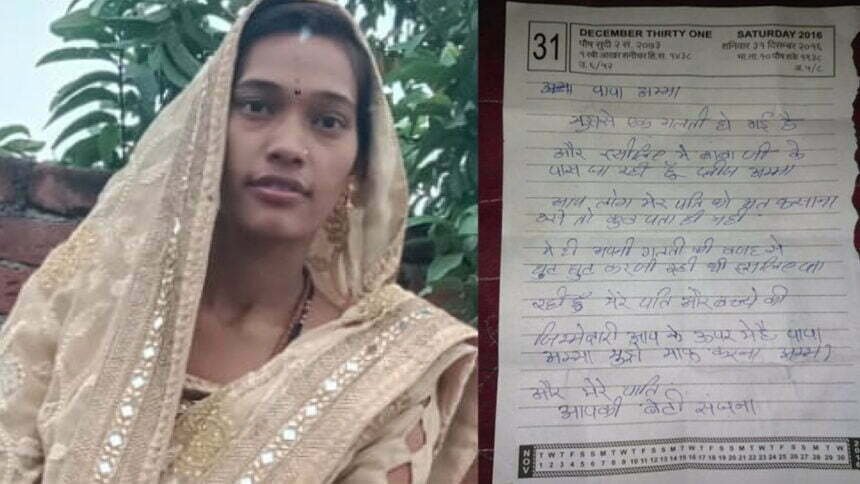 31 DECEMBER THIRTY ONE SATURDAY 2016
पौष सुदी २ स. २०७३ शनिवार ३१ दिसम्बर २०१६
हि.स. १४३८ भा.ता. १० पौष शके १९३८
पापा अम्मा
मुझसे एक गलती हो गई है
और इसीलिए मे बाबा जी के
पास जा रही हूँ प्लीज अम्मा
आप लोग मेरे पति को मत फसाना
उसे तो कुछ पता ही नही
मे ही अपनी गलती की वजह से
घुट घुट कर जी रही थी इसलिए जा
रही हूँ मेरे पति और बच्चे की
जिम्मेदारी आप के ऊपर मे है पापा
अम्मा मुझे माफ करना अम्मा
और मेरे पति
आपकी बेटी संजना
NOV T W T F S S M T W T F S S M T W T F S S M T W T F S S M T W
1 2 3 4 5 6 7 8 9 10 11 12 13 14 15 16 17 18 19 20 21 22 23 24 25 26 27 28 29 30